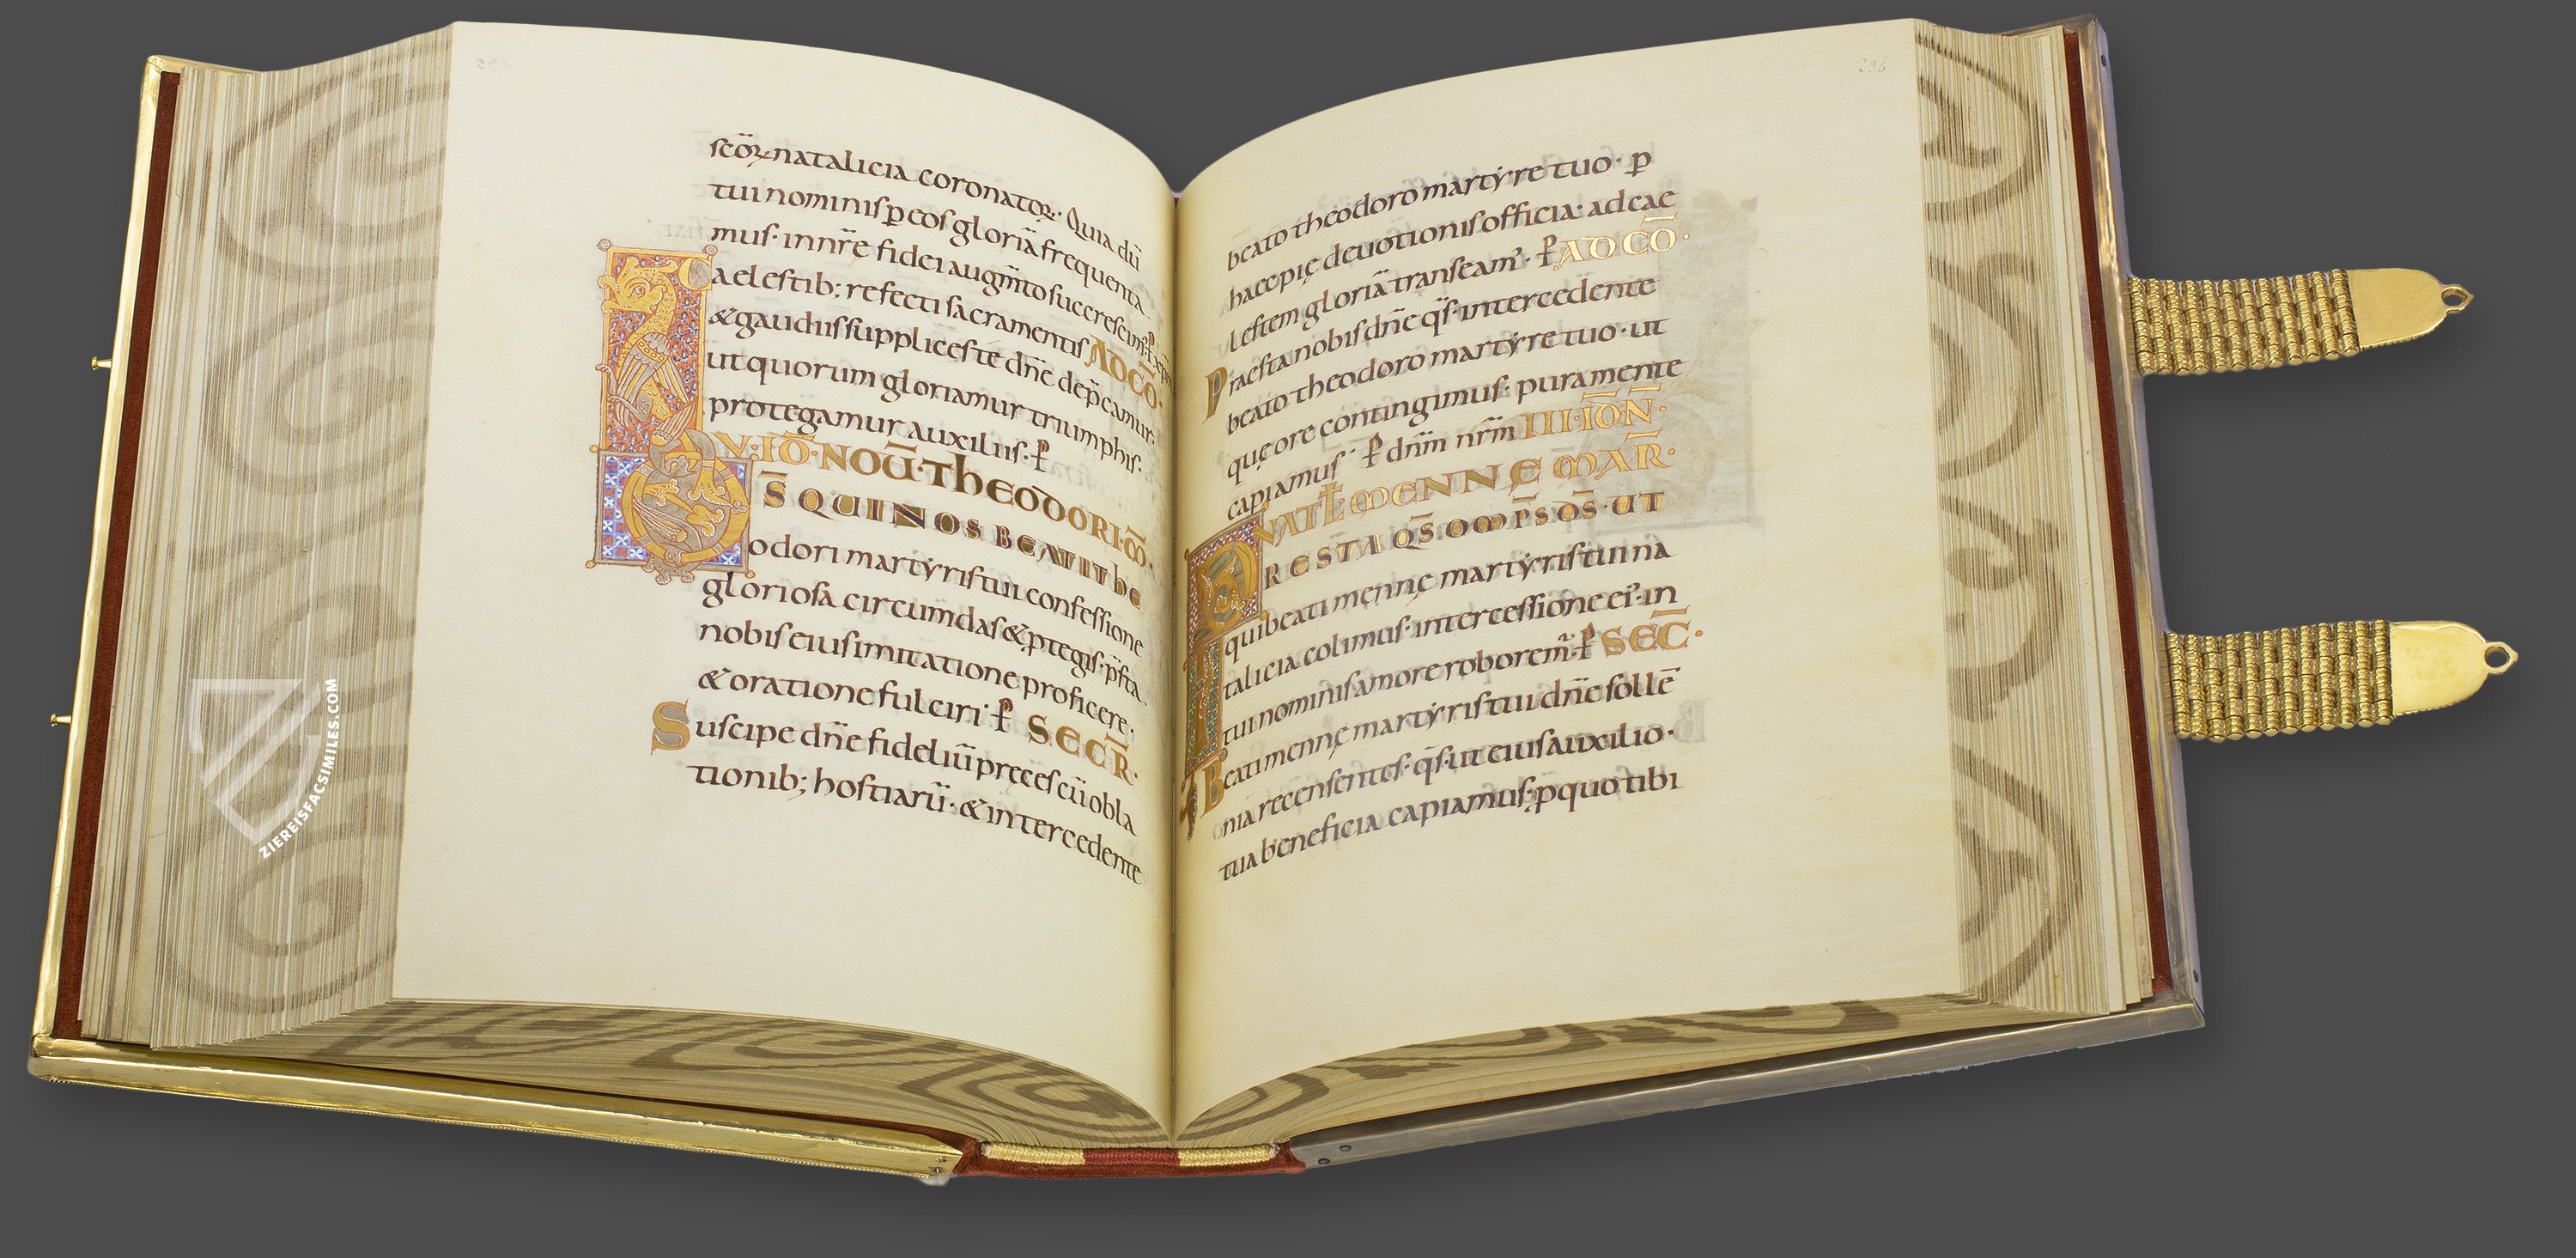 scōꝝ natalicia coronatoꝝ· Quia dū
tui nominis ꝑ eos gloriā frequenta
mus· in nr̄ę fidei augm̄to succrescim᷒· ꝑ
Caelestib; refecti sacramentis AD CŌ·
& gaudiis supplices te dn̄e dep̄camur·
ut quorum gloriamur triumphis·
protegamur auxiliis· ꝑ
V· ID̄· NOV̄· ThEODORI· M̄·
D̄S QUI NOS BEATI The
odori martẏris tui confessione
gloriosa circum̄das & ꝓtegis· p̄sta
nobis eius imitatione proficere·
& oratione fulciri· ꝑ SECR̄·
Suscipe dn̄e fideliū pręces cū obla
tionib; hostiarū· & intercedente
236
beato theodoro martẏre tuo· ꝑ
haec pię deuotionis officia· ad cae
lestem gloriā transeam᷒· ꝑ AD CŌ·
Praesta nobis dn̄e q̄s· intercedente
beato theodoro martẏre tuo· ut
quę ore contingimus· pura mente
capiamus· ꝑ dn̄m nr̄m III· ID̄· N̄·
NAT̄ MENNĘ MAR̄·
PRESTA Q̄S OMP̄S D̄S· UT
qui beati mennę martẏris tui na
talicia colimus· intercessione ei᷒· in
tui nominis amore roborem̄᷒· ꝑ SEC̄·
Beati mennę martẏris tui dn̄e sollē
nia recensentes· q̄s· ut eius auxilio·
tua beneficia capiamus· ꝑ quo tibi
ZIEREISFACSIMILES.COM